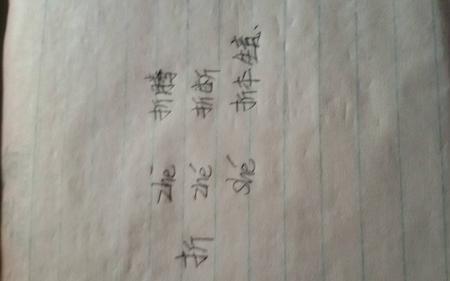 zhē 折腾
折 zhé 折断
shé 折本生意